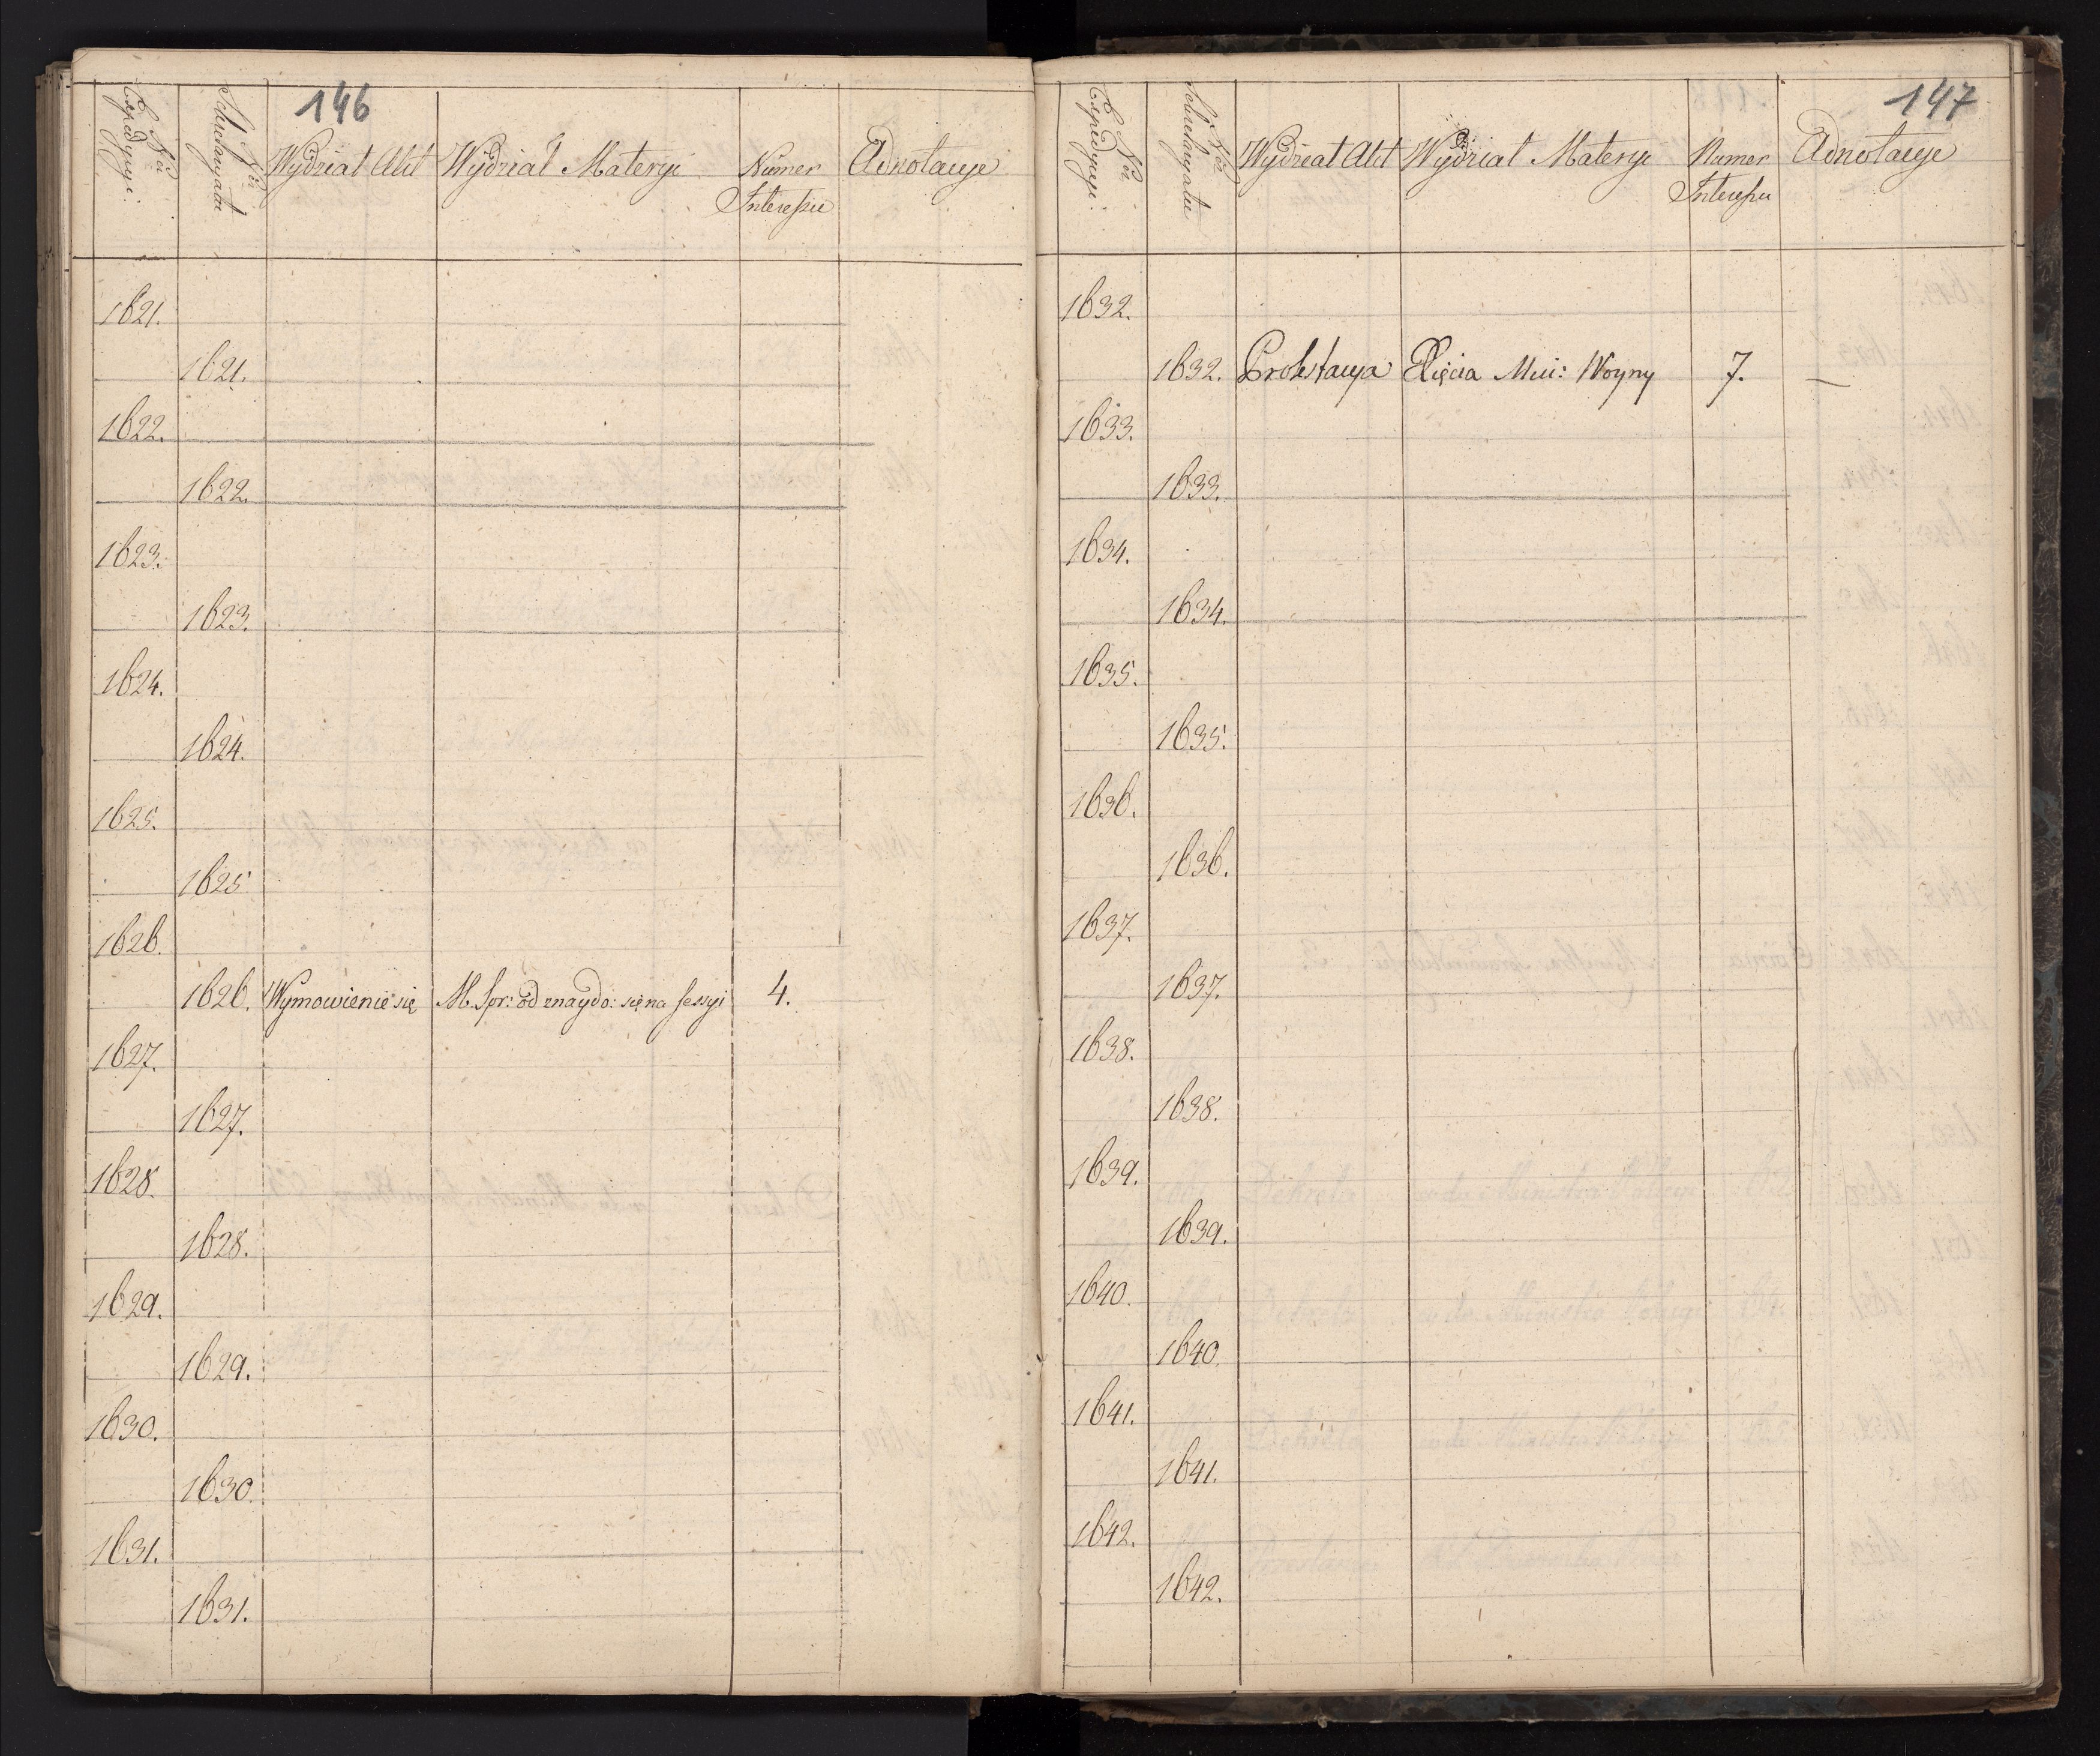 146
Nro Expedycyi.
Nro Sekretaryatu
Wydział Akt
Wydział Materyi
Numer Interessu
Adnotacye
1621.
1621.
1622.
1622.
1623.
1623.
1624.
1624.
1625.
1625
1626.
1626. Wymowienie się M. Spr: od znaydo: się na sessyi 4.
1627.
1627.
1628.
1628.
1629.
1629.
1630.
1630.
1631.
1631.
147
Nro Expedycyi.
Nro Sekretaryatu
Wydział Akt
Wydział Materyi
Numer Interessu
Adnotacye
1632.
1632. Xięcia Mini: Woyny 7. —
1633.
1633.
1634.
1634.
1635.
1635.
1636.
1636.
1637.
1637.
1638.
1638.
1639.
1639.
1640.
1640.
1641.
1641.
1642.
1642.